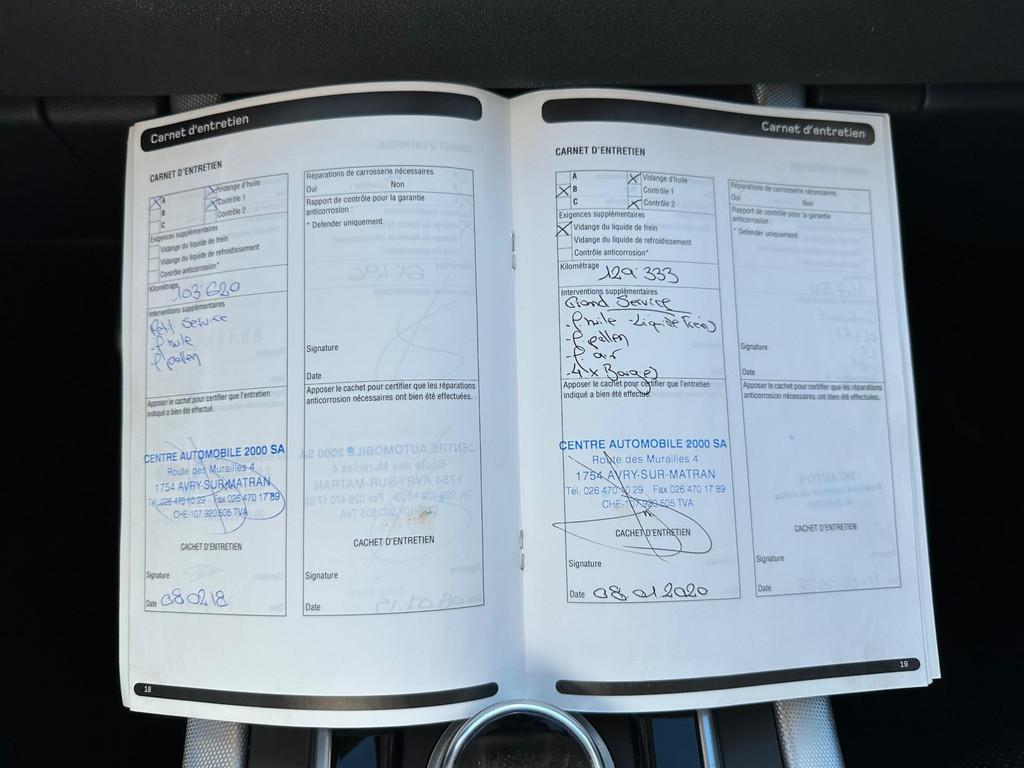 Carnet d'entretien
CARNET D'ENTRETIEN
A
B
C
Vidange d'huile
Contrôle 1
Contrôle 2
Exigences supplémentaires
Vidange du liquide de frein
Vidange du liquide de refroidissement
Contrôle anticorrosion*
Kilométrage
103620
Interventions supplémentaires
Petit Service
-f huile
-f pollen
Apposer le cachet pour certifier que l'entretien
indiqué a bien été effectué.
CENTRE AUTOMOBILE 2000 SA
Route des Murailles 4
1754 AVRY-SUR-MATRAN
Tél. 026 470 10 29 Fax 026 470 17 89
CHE-107.920.505 TVA
CACHET D'ENTRETIEN
Signature
Date 08.02.18
Réparations de carrosserie nécessaires
Oui Non
Rapport de contrôle pour la garantie
anticorrosion :
* Defender uniquement
Signature
Date
Apposer le cachet pour certifier que les réparations
anticorrosion nécessaires ont bien été effectuées.
CACHET D'ENTRETIEN
Signature
Date
18
Carnet d'entretien
CARNET D'ENTRETIEN
A
B
C
Vidange d'huile
Contrôle 1
Contrôle 2
Exigences supplémentaires
Vidange du liquide de frein
Vidange du liquide de refroidissement
Contrôle anticorrosion*
Kilométrage
129 333
Interventions supplémentaires
Grand Service
-f huile -Liquide Frein
-f pollen
-f. air
-4x Bougies
Apposer le cachet pour certifier que l'entretien
indiqué a bien été effectué.
CENTRE AUTOMOBILE 2000 SA
Route des Murailles 4
1754 AVRY-SUR-MATRAN
Tél. 026 470 10 29 Fax 026 470 17 89
CHE-107.920.505 TVA
CACHET D'ENTRETIEN
Signature
Date 08.01.2020
Réparations de carrosserie nécessaires
Oui Non
Rapport de contrôle pour la garantie
anticorrosion :
* Defender uniquement
Signature
Date
Apposer le cachet pour certifier que les réparations
anticorrosion nécessaires ont bien été effectuées.
CACHET D'ENTRETIEN
Signature
Date
19